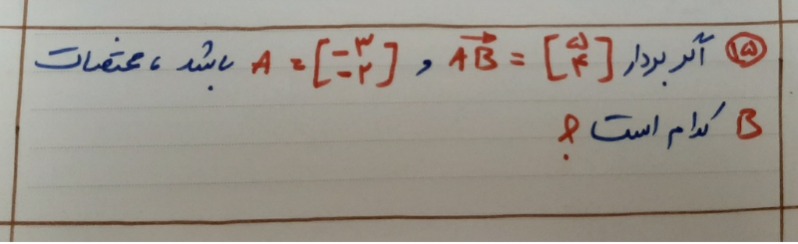 ۱۵ اگر بردار AB = [۵ ۴] و A = [-۳ -۲] باشد، مختصات
B کدام است ؟